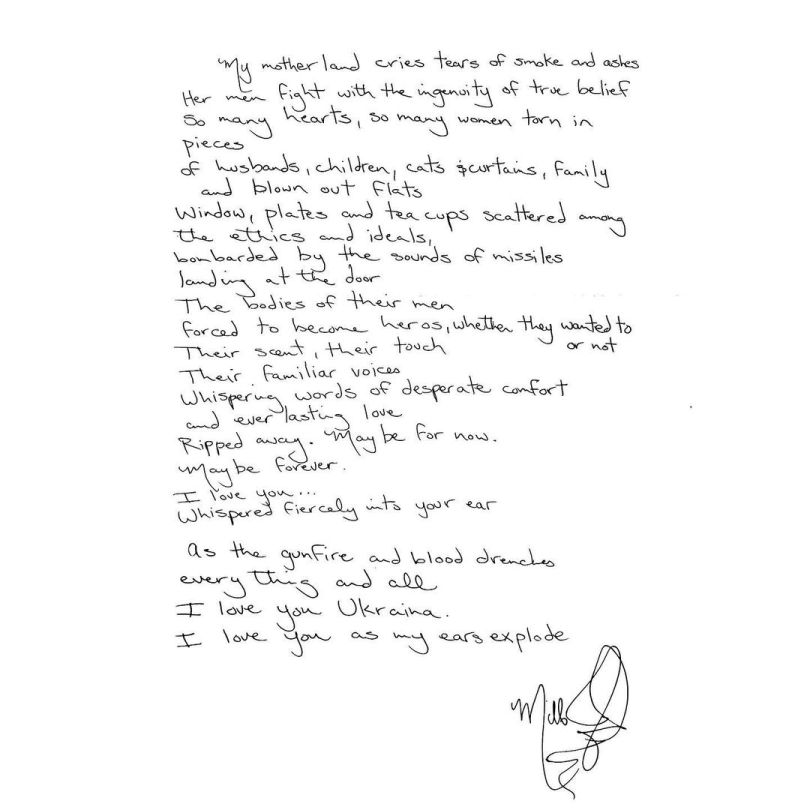 My motherland cries tears of smoke and ashes
Her men fight with the ingenuity of true belief
So many hearts, so many women torn in
pieces
of husbands, children, cats & curtains, family
and blown out flats
Window, plates and tea cups scattered among
the ethics and ideals,
bombarded by the sounds of missiles
landing at the door
The bodies of their men
forced to become heros, whether they wanted to
or not
Their scent, their touch
Their familiar voices
Whispering words of desperate comfort
and ever lasting love
Ripped away. Maybe for now.
Maybe forever.
I love you...
Whispered fiercely into your ear
As the gunfire and blood drenches
every thing and all
I love you Ukraina.
I love you as my ears explode